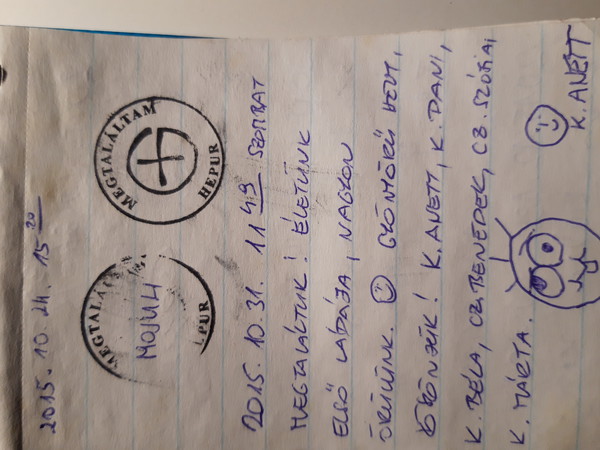 2015. 10. 24. 15 20
MEGTALÁLTAM
HEPUR
MOJULI
2015. 10. 31. 11 49 SZOMBAT
MEGTALÁLTUK! ÉLETÜNK
ELSŐ LÁDÁJA, NAGYON
ÖRÜLÜNK. GYÖNYÖRŰ HELY,
KÖSZÖNJÜK! K. ANETT, K. DANI,
K. BÉLA, CZ. BENEDEK, CZ. SZÓFIA,
K. MÁRTA.
K. ANETT